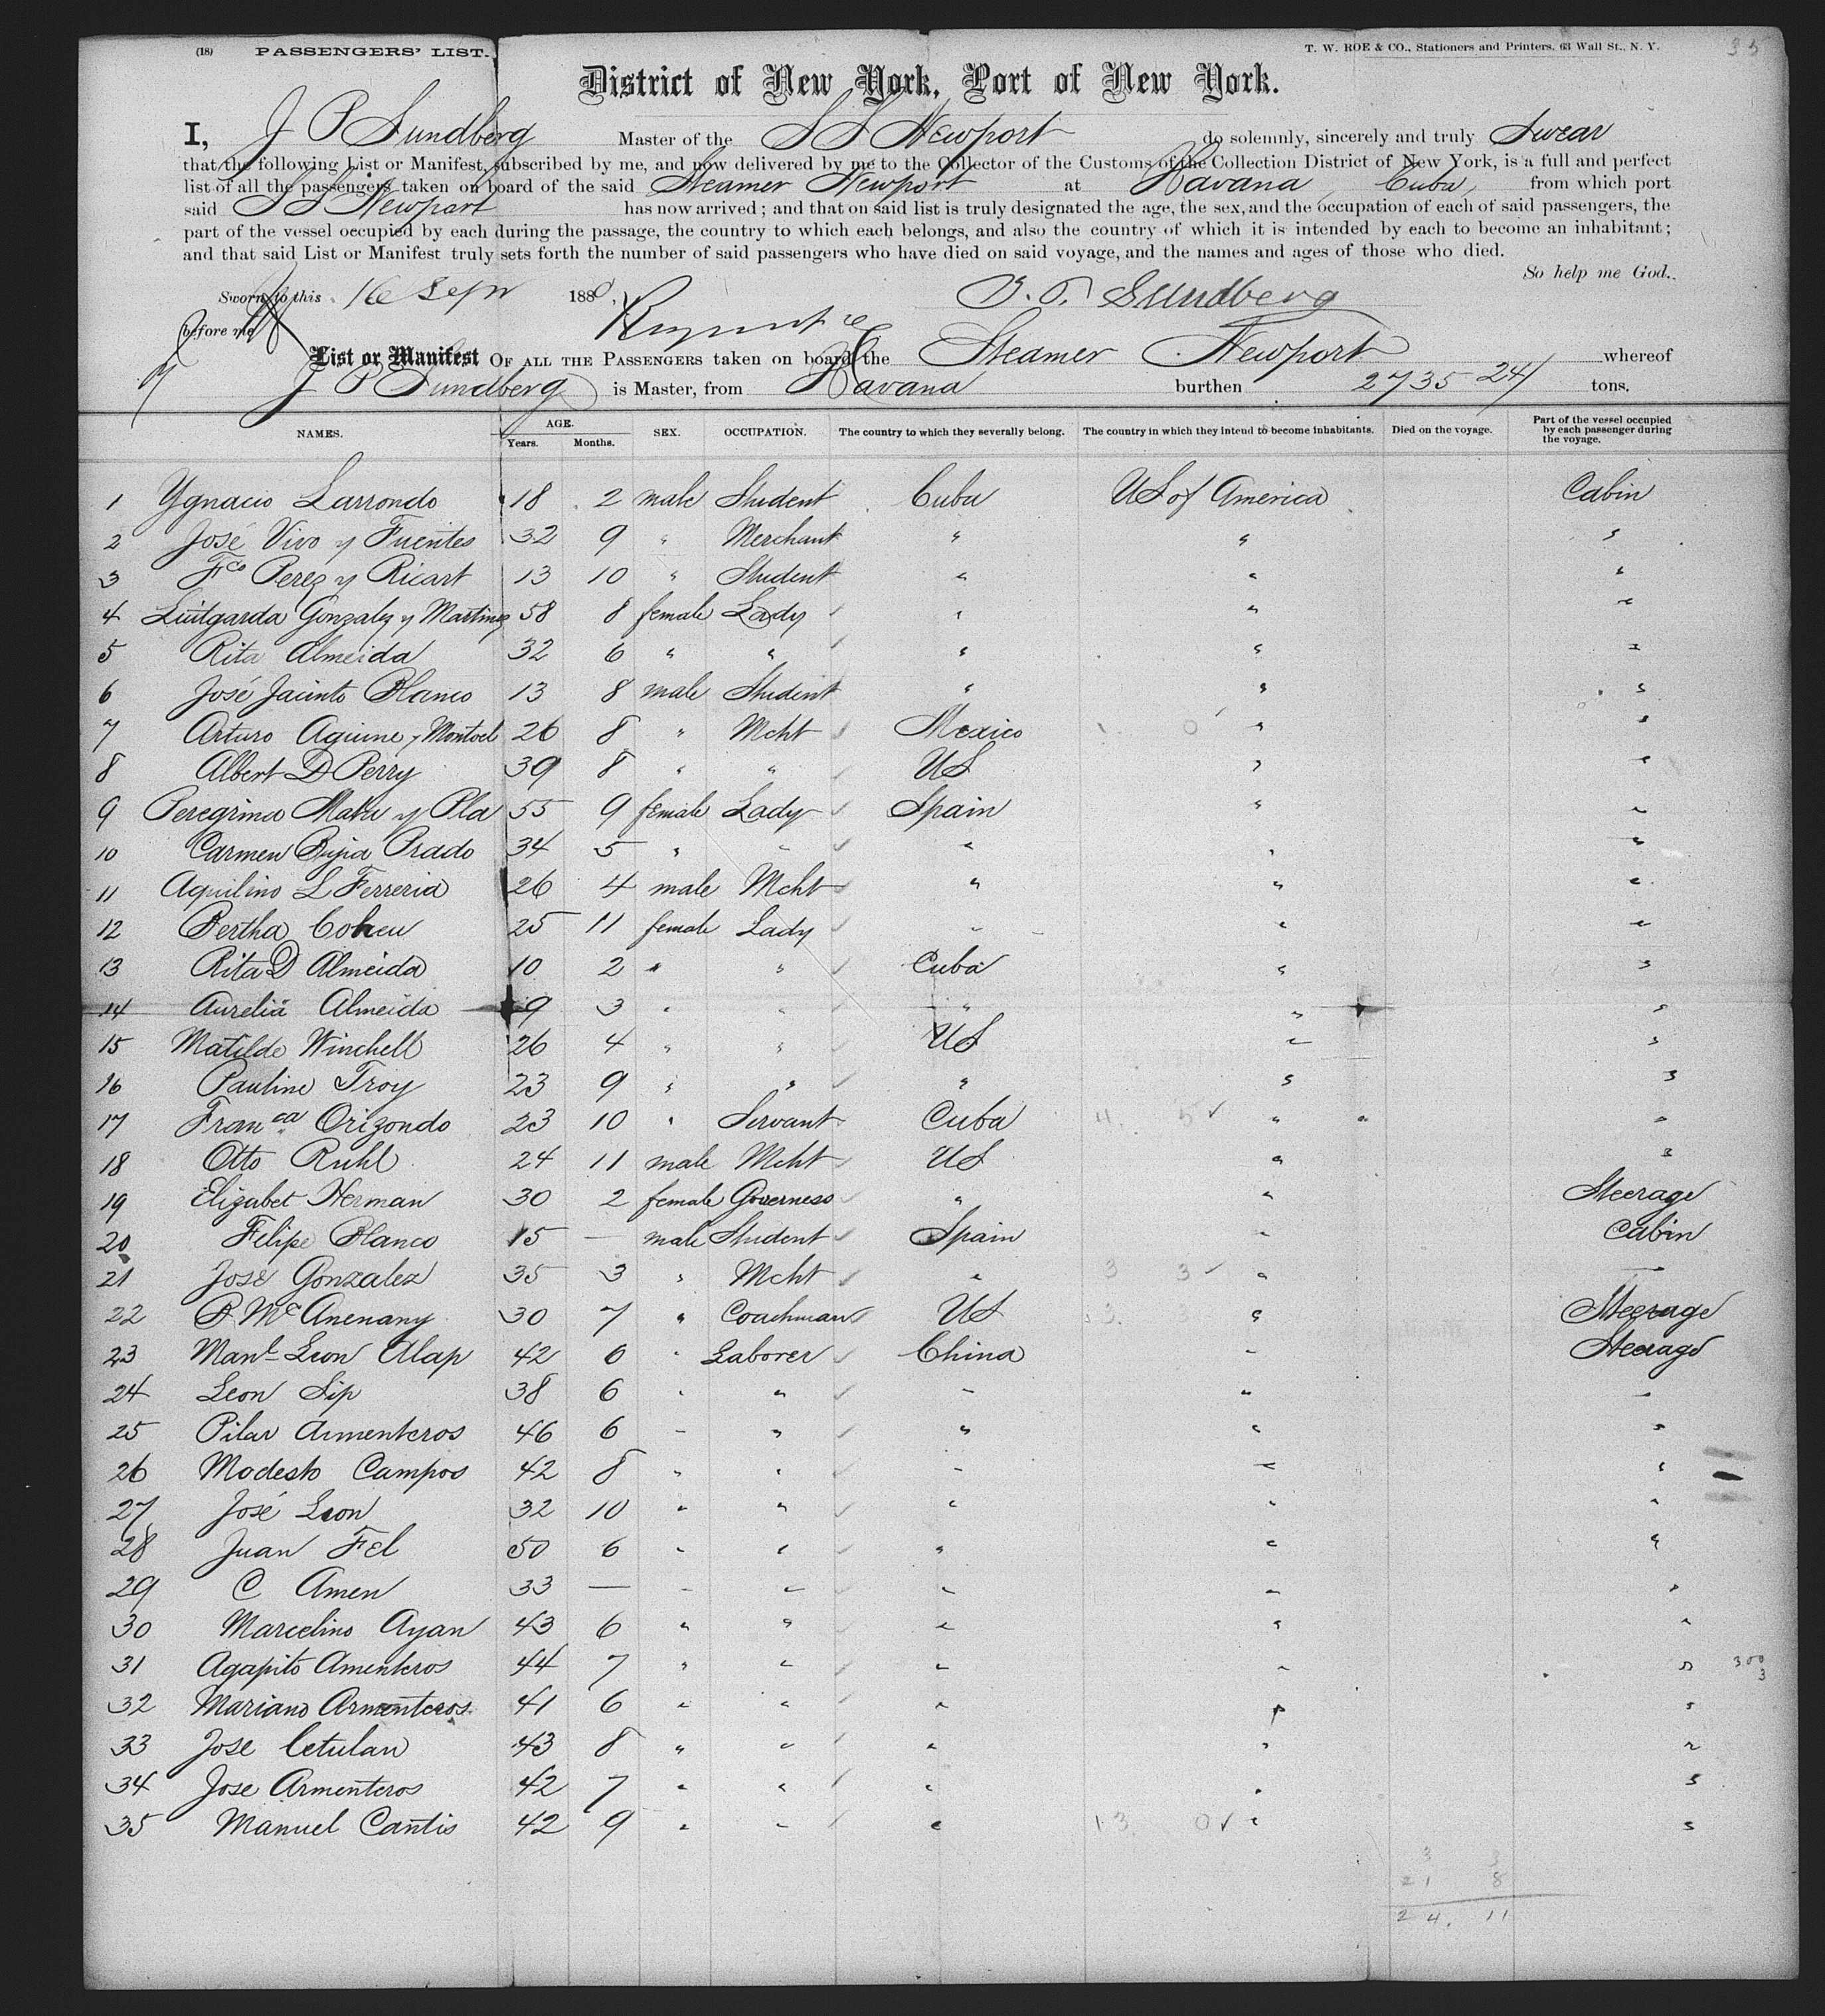 (18) PASSENGERS' LIST.
T. W. ROE & CO., Stationers and Printers, 63 Wall St., N. Y.
35
District of New York, Port of New York.
I, J P Sundberg Master of the S S Newport do solemnly, sincerely and truly Swear
that the following List or Manifest, subscribed by me, and now delivered by me to the Collector of the Customs of the Collection District of New York, is a full and perfect
list of all the passengers taken on board of the said Steamer Newport at Havana, Cuba, from which port
said S S Newport has now arrived; and that on said list is truly designated the age, the sex, and the occupation of each of said passengers, the
part of the vessel occupied by each during the passage, the country to which each belongs, and also the country of which it is intended by each to become an inhabitant;
and that said List or Manifest truly sets forth the number of said passengers who have died on said voyage, and the names and ages of those who died.
So help me God.
Sworn to this 16 Sep 1880,
J. P. Sundberg
before me
List or Manifest OF ALL THE PASSENGERS taken on board the Steamer Newport whereof
J P Sundberg is Master, from Havana burthen 2735 24/ tons.
NAMES. AGE. Years. Months. SEX. OCCUPATION. The country to which they severally belong. The country in which they intend to become inhabitants. Died on the voyage. Part of the vessel occupied by each passenger during the voyage.
1 Ygnacio Larrondo 18 2 male Student Cuba US of America Cabin
2 José Vivo y Fuentes 32 9 " Merchant " " "
3 Fco Perez y Ricart 13 10 " Student " " "
4 Luitgarda Gonzalez y Martinez 58 8 female Lady " " "
5 Rita Almeida 32 6 " " " " "
6 José Jacinto Blanco 13 8 male Student " " "
7 Arturo Aguirre y Montoel 26 8 " Mcht Mexico 0 " "
8 Albert D Perry 39 8 " " US " "
9 Peregrina Mateu y Pla 55 9 female Lady Spain " "
10 Carmen Bujia Prado 34 5 " " " " "
11 Aquilino L Ferreria 26 4 male Mcht " " "
12 Bertha Cohen 25 11 female Lady " " "
13 Rita D Almeida 10 2 " " Cuba " "
14 Aurelia Almeida 9 3 " " " " "
15 Matilde Winchell 26 4 " " US " "
16 Pauline Troy 23 9 " " " " "
17 Franca Orizondo 23 10 " Servant Cuba 4. 5 " "
18 Otto Ruhl 24 11 male Mcht US " "
19 Elizabet Herman 30 2 female Governess " " Steerage
20 Felipe Blanco 15 — male Student Spain " Cabin
21 José Gonzalez 35 3 " Mcht " 3 3 " —
22 B McAnenany 30 7 " Coachman US 3. 3 " Steerage
23 Manl Leon Alap 42 6 " Laborer China " Steerage
24 Leon Sip 38 6 " " " " "
25 Pilar Armenteros 46 6 " " " " "
26 Modesto Campos 42 8 " " " " "
27 José Leon 32 10 " " " " "
28 Juan Fel 50 6 " " " " "
29 C Amen 33 — " " " " "
30 Marcelino Ayan 43 6 " " " " "
31 Agapito Amenteros 44 7 " " " " " 300 3
32 Mariano Armenteros 41 6 " " " " "
33 Jose Cetulan 43 8 " " " " "
34 Jose Armenteros 42 7 " " " " "
35 Manuel Cantis 42 9 " " " 13 0 " "
3 3
21 8
24. 11